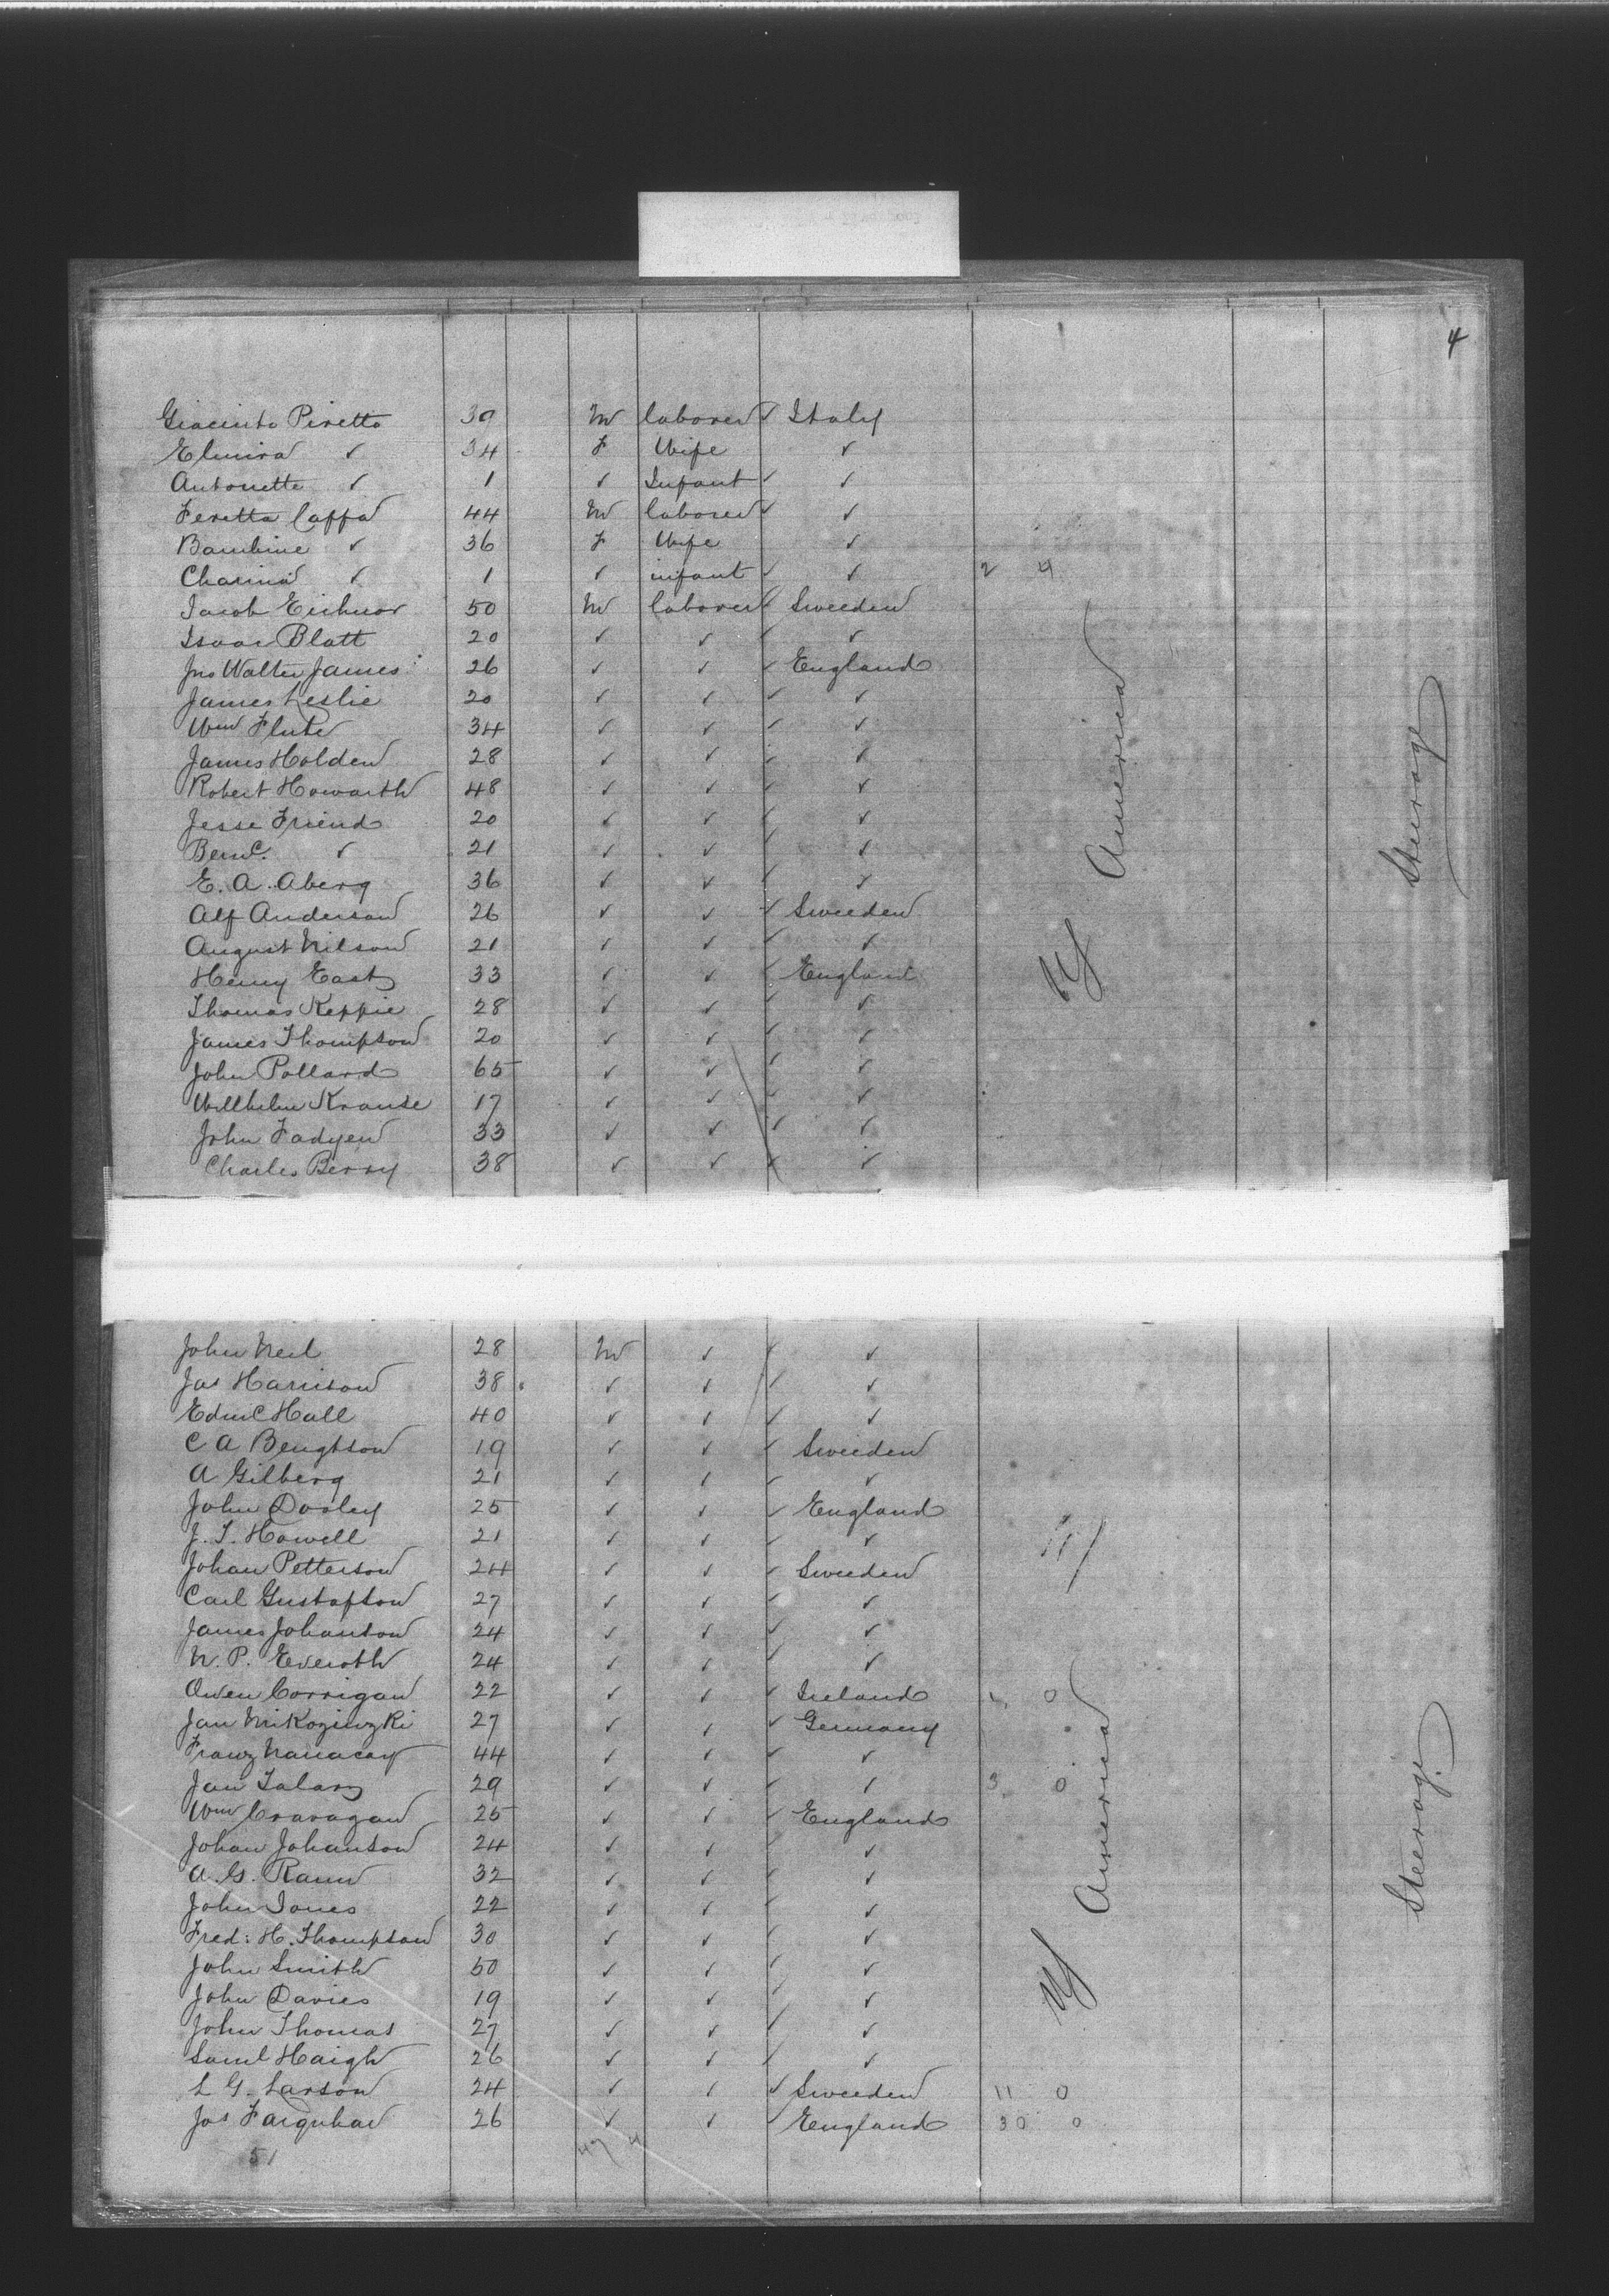 4
Giacinto Piretto 30 M laborer ✓ Italy
Elmira ✓ 34 F Wife ✓
Antonette ✓ 1 ✓ Infant ✓ ✓
Feretta Caffa 44 M laborer ✓ ✓
Bambine ✓ 36 F Wife ✓
Charina ✓ 1 ✓ infant ✓ ✓ 2 4
Jacob 50 M laborer ✓ Sweeden
Isaac Blatt 20 ✓ ✓ ✓ ✓
Jno Walter James 26 ✓ ✓ ✓ England
James Leslie 20 ✓ ✓ ✓ ✓
Wm Flute 34 ✓ ✓ ✓ ✓
James Holden 28 ✓ ✓ ✓ ✓
Robert Howarth 48 ✓ ✓ ✓ ✓
Jesse Friend 20 ✓ ✓ ✓ ✓
Benj. ✓ 21 ✓ ✓ ✓ ✓
E. A. Aberg 36 ✓ ✓ ✓ ✓
Alf Anderson 26 ✓ ✓ ✓ Sweeden
August Nilson 21 ✓ ✓ ✓ ✓
Henry East 33 ✓ ✓ ✓ England
Thomas Keppie 28 ✓ ✓ ✓ ✓
James Thompson 20 ✓ ✓ ✓ ✓
John Pollard 65 ✓ ✓ ✓ ✓
Willhelm Krause 17 ✓ ✓ ✓ ✓
John Fadyen 33 ✓ ✓ ✓ ✓
Charles Berry 38 ✓ ✓ ✓ ✓
America
Steerage
John Neil 28 M ✓ ✓ ✓
Jas Harrison 38 ✓ ✓ ✓ ✓
Edmd Hall 40 ✓ ✓ ✓ ✓
C A Bengtson 19 ✓ ✓ ✓ Sweeden
A Gilberg 21 ✓ ✓ ✓ ✓
John Dooley 25 ✓ ✓ ✓ England
J. T. Howell 21 ✓ ✓ ✓ ✓
Johan Petterson 24 ✓ ✓ ✓ Sweeden
Carl Gustafson 27 ✓ ✓ ✓ ✓
James Johanson 24 ✓ ✓ ✓ ✓
N. P. Everoth 24 ✓ ✓ ✓ ✓
Owen Corrigan 22 ✓ ✓ ✓ Ireland 1 0
Jan 27 ✓ ✓ ✓ Germany
Franz 44 ✓ ✓ ✓ ✓
Jan 29 ✓ ✓ ✓ ✓ 3 0
Wm Cravagan 25 ✓ ✓ ✓ England
Johan Johanson 24 ✓ ✓ ✓ ✓
A. G. Rann 32 ✓ ✓ ✓ ✓
John Jones 22 ✓ ✓ ✓ ✓
Fred: H. Thompson 30 ✓ ✓ ✓ ✓
John Smith 50 ✓ ✓ ✓ ✓
John Davies 19 ✓ ✓ ✓ ✓
John Thomas 27 ✓ ✓ ✓ ✓
Saml Haigh 26 ✓ ✓ ✓ ✓
L G. Larson 24 ✓ ✓ ✓ Sweeden 11 0
Jos Farquhar 26 ✓ ✓ ✓ England 30 0
51 47 4
America
Steerage